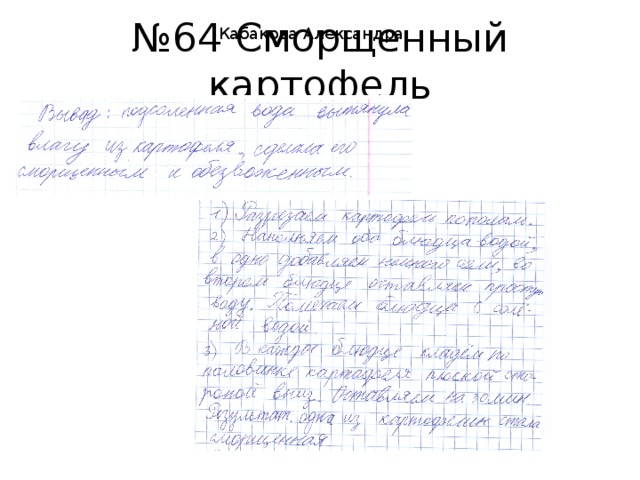 Кабакова Александра
№64 Сморщенный
картофель
Вывод: подсоленная вода вытянула
влагу из картофеля, сделала его
сморщенным и обезвоженным.
1) Разрезаем картофель пополам.
2) Наполняем оба блюдца водой,
в одно добавляем немного соли, во
втором блюдце оставляем простую
воду. Помечаем блюдца с солё-
ной водой
3) В каждое блюдце кладём по
половинке картофеля плоской сто-
роной вниз. Оставляем на 30 мин
Результат: одна из картофелин стала
сморщенная